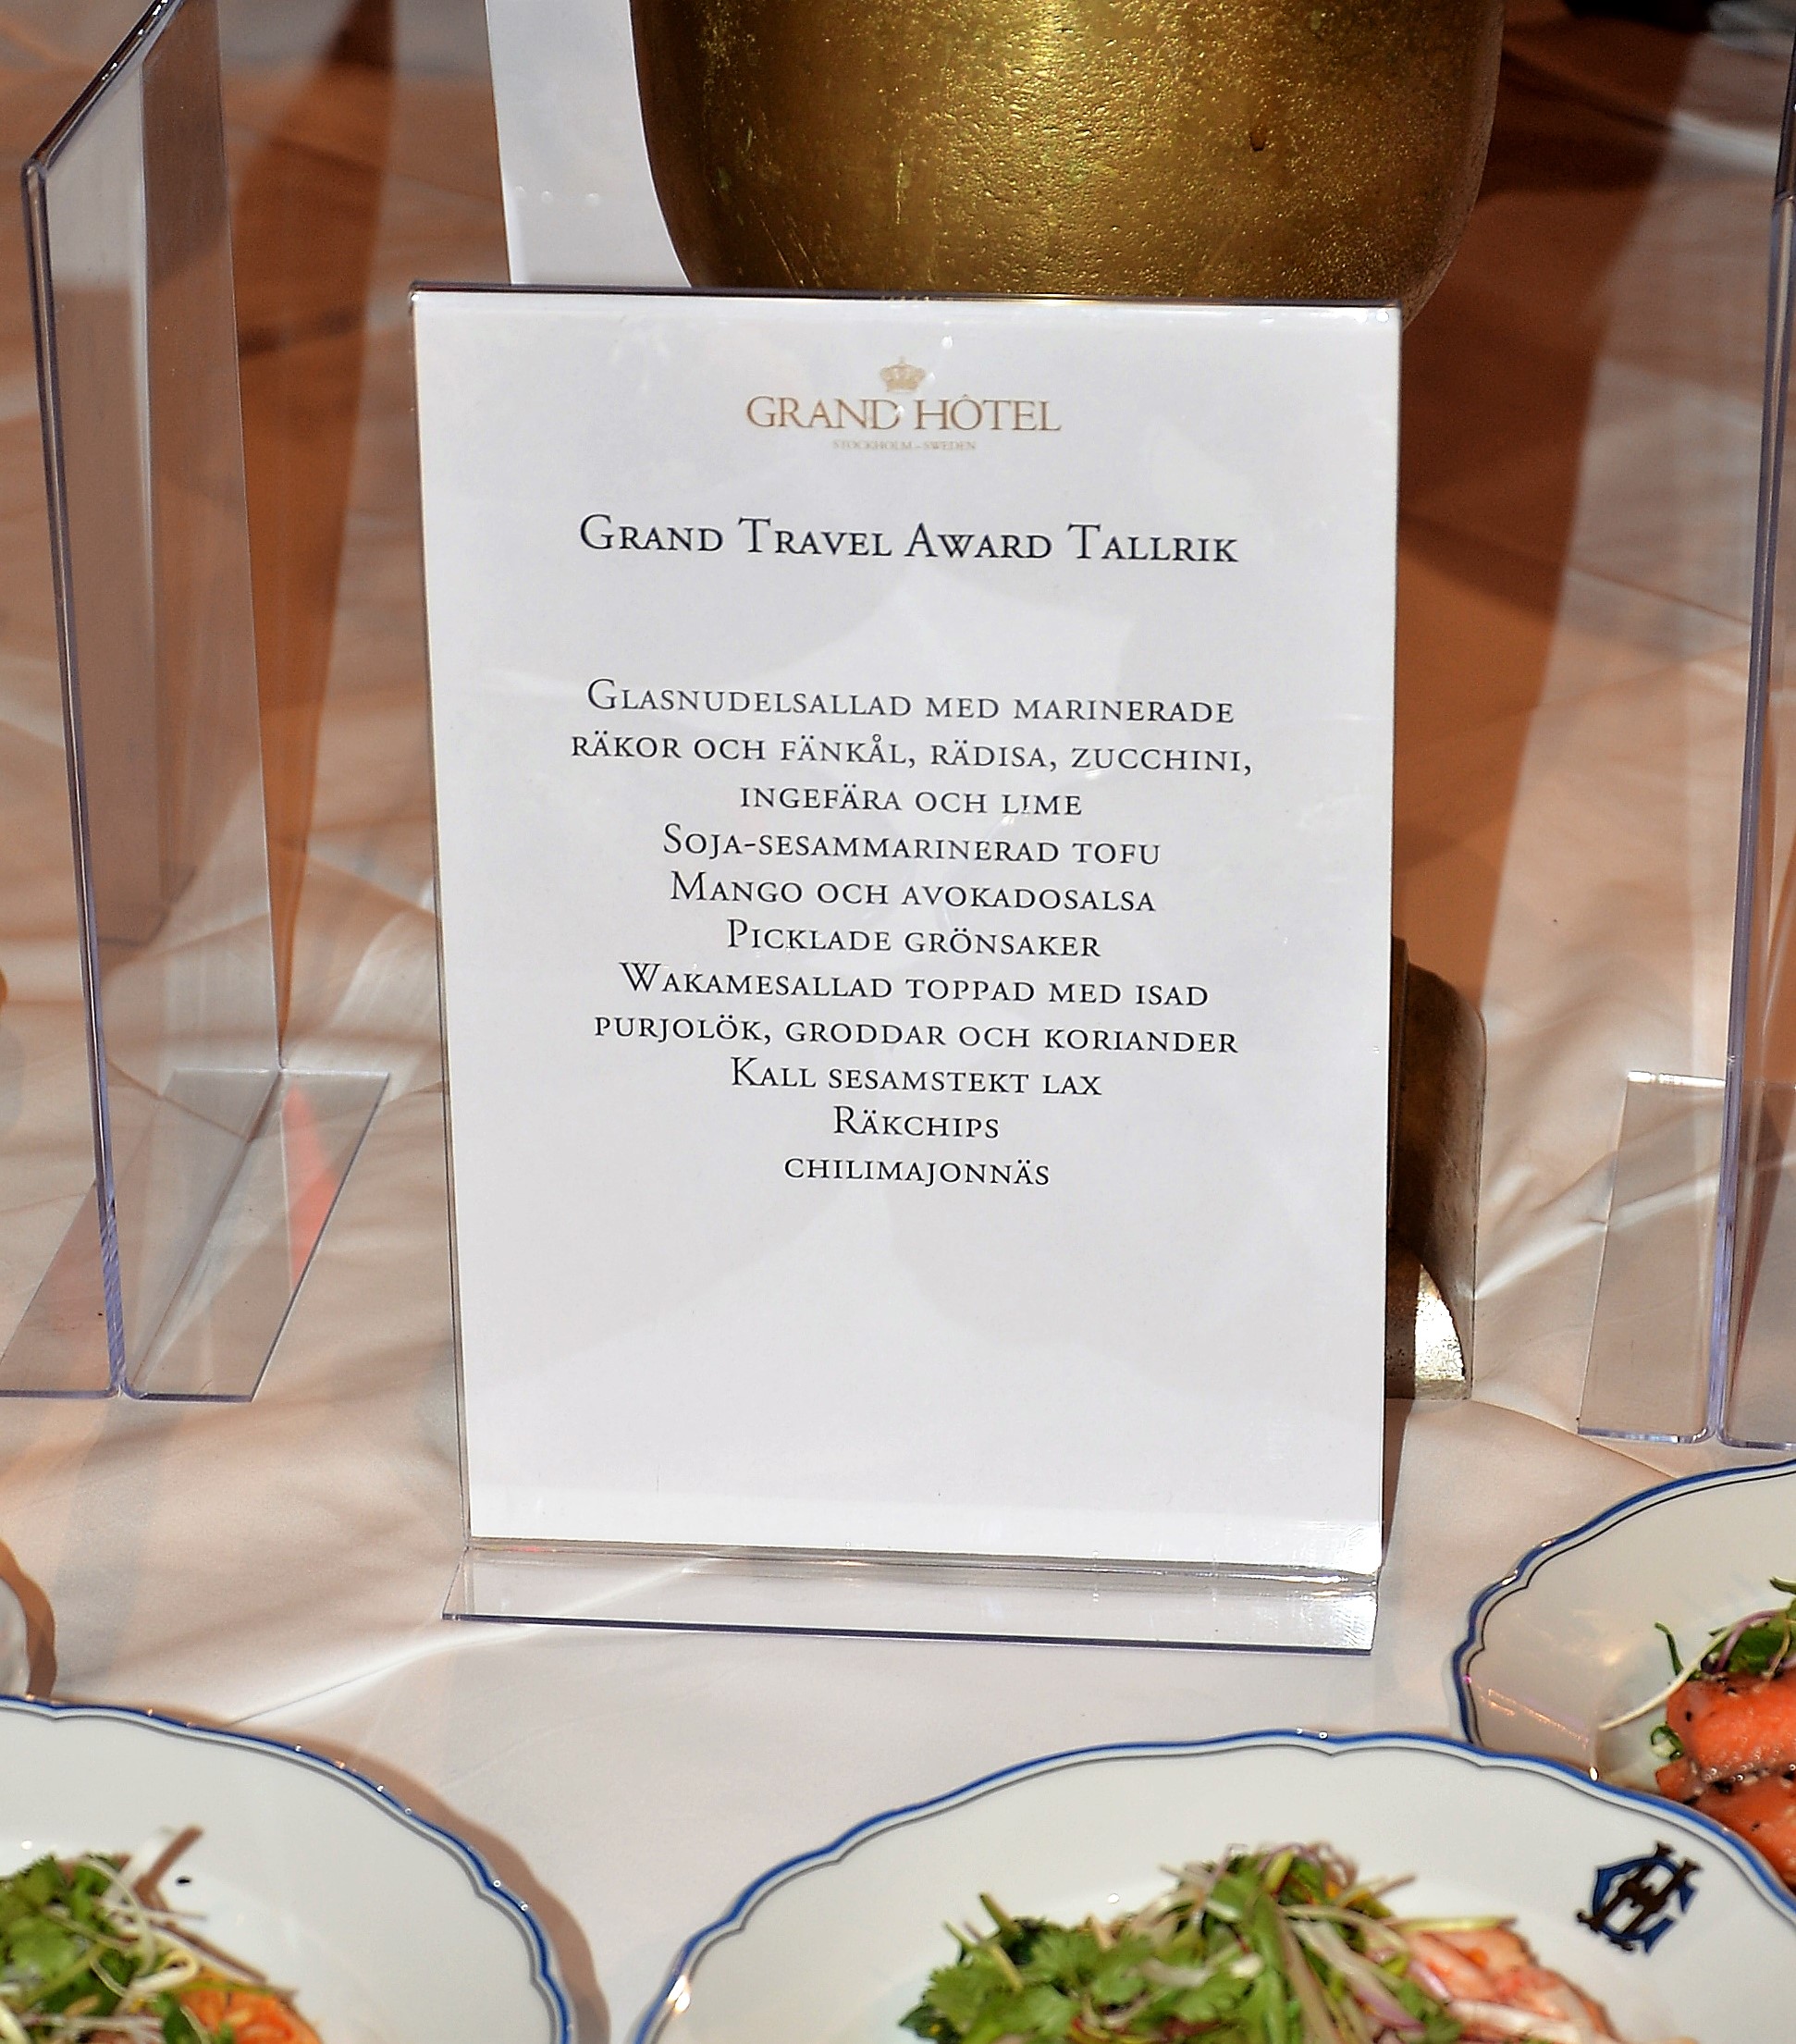 GRAND HÔTEL
STOCKHOLM – SWEDEN
GRAND TRAVEL AWARD TALLRIK
GLASNUDELSALLAD MED MARINERADE
RÄKOR OCH FÄNKÅL, RÄDISA, ZUCCHINI,
INGEFÄRA OCH LIME
SOJA-SESAMMARINERAD TOFU
MANGO OCH AVOKADOSALSA
PICKLADE GRÖNSAKER
WAKAMESALLAD TOPPAD MED ISAD
PURJOLÖK, GRODDAR OCH KORIANDER
KALL SESAMSTEKT LAX
RÄKCHIPS
CHILIMAJONNÄS